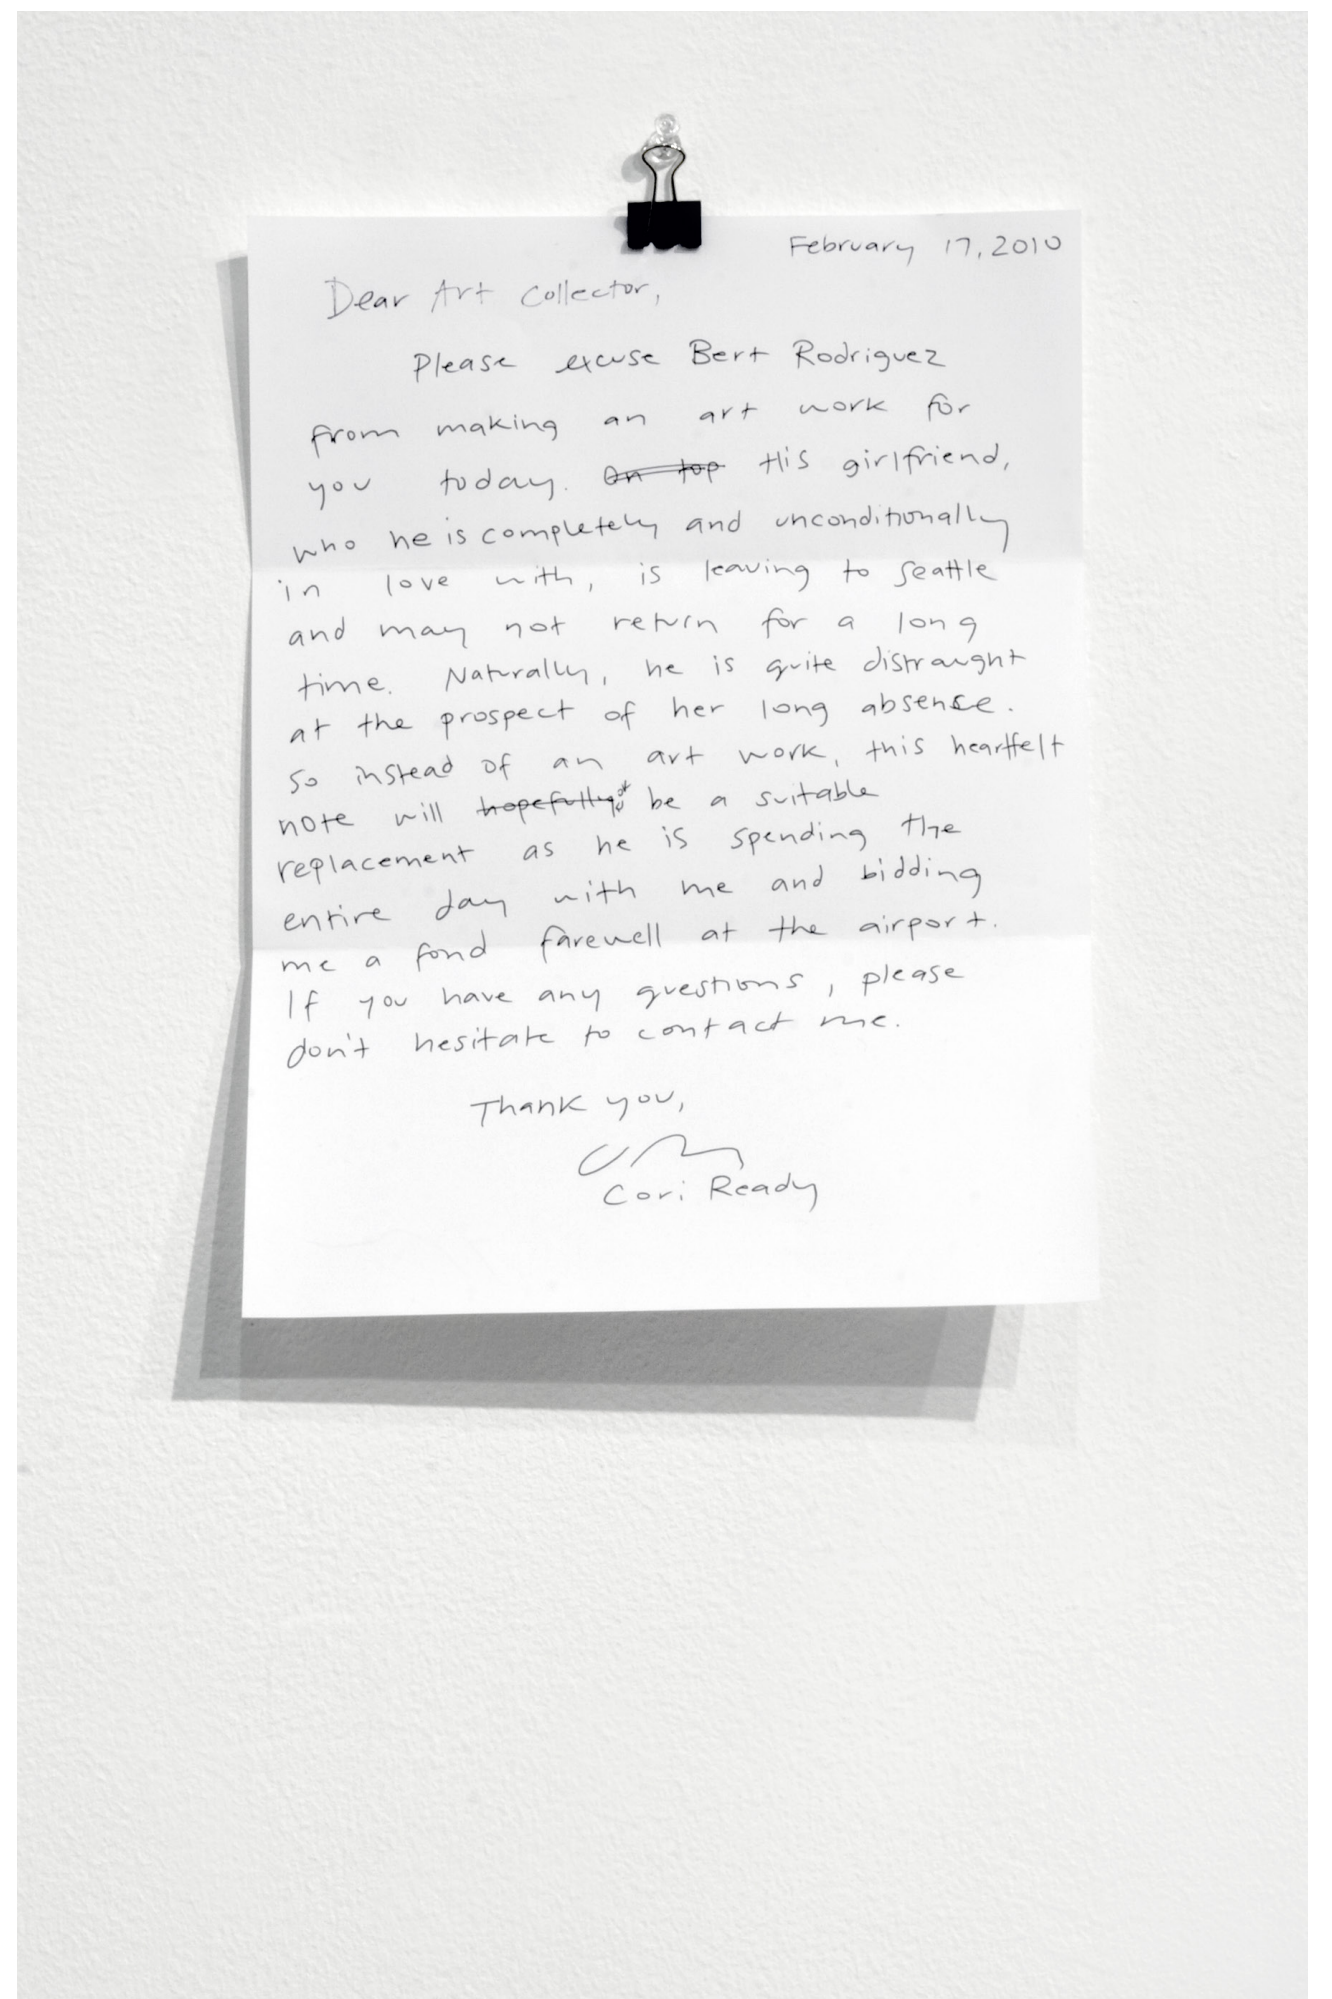 February 17, 2010
Dear Art Collector,
Please excuse Bert Rodriguez
from making an art work for
you today. On top His girlfriend,
who he is completely and unconditionally
in love with, is leaving to Seattle
and may not return for a long
time. Naturally, he is quite distraught
at the prospect of her long absense.
So instead of an art work, this heartfelt
note will hopefully be a suitable
replacement as he is spending the
entire day with me and bidding
me a fond farewell at the airport.
If you have any questions, please
don't hesitate to contact me.
Thank you,
Cori Ready